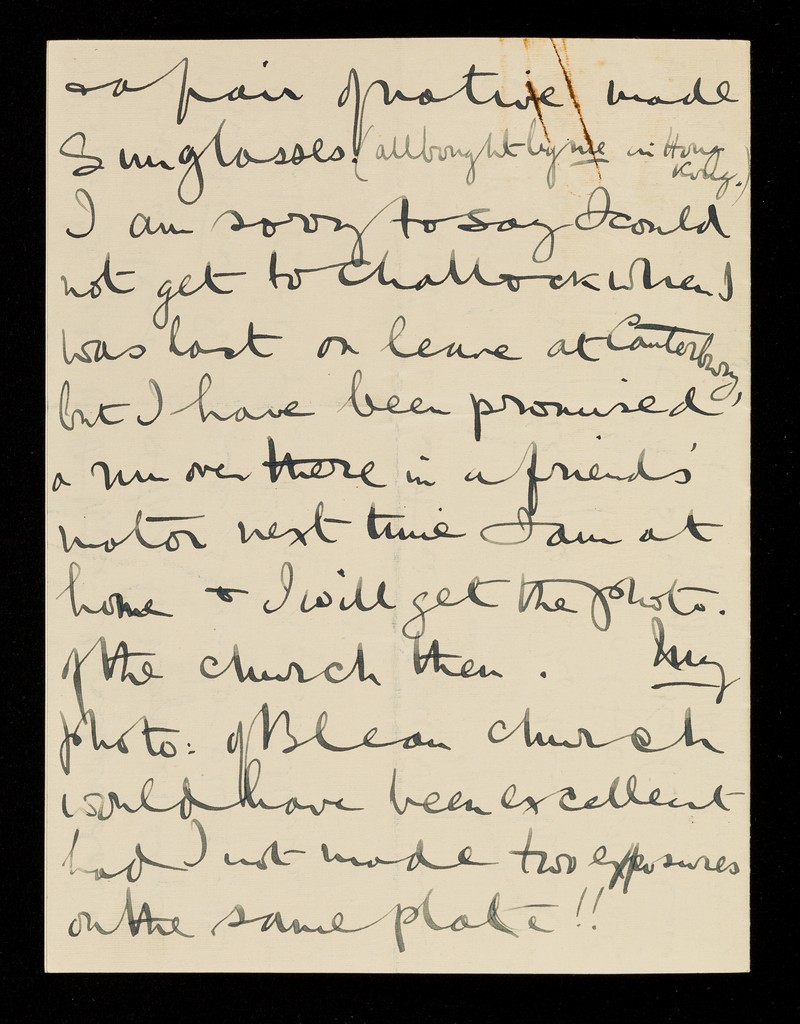 & a pair of native made
Sunglasses. (all bought by me in Hong
Kong.)
I am sorry to say I could
not get to Challock when I
was last on leave at Canterbury,
but I have been promised
a run over there in a friends'
motor next time I am at
home & I will get the photo.
of the church then. My
photo: of Blean church
would have been excellent
had I not made two exposures
on the same plate!!